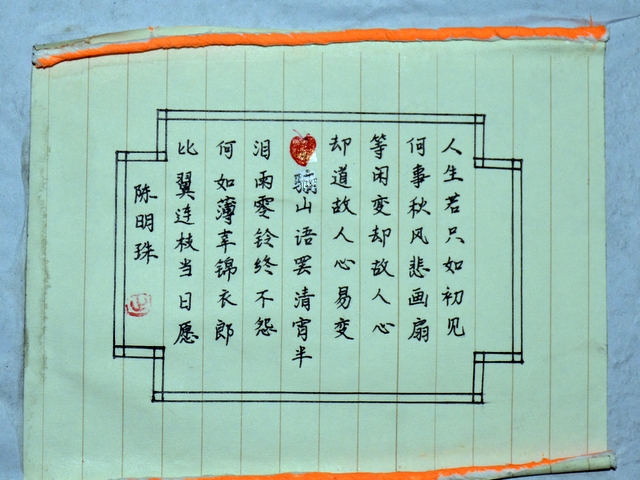 人生若只如初见
何事秋风悲画扇
等闲变却故人心
却道故人心易变
骊山语罢清宵半
泪雨零铃终不怨
何如薄幸锦衣郎
比翼连枝当日愿
陈明珠